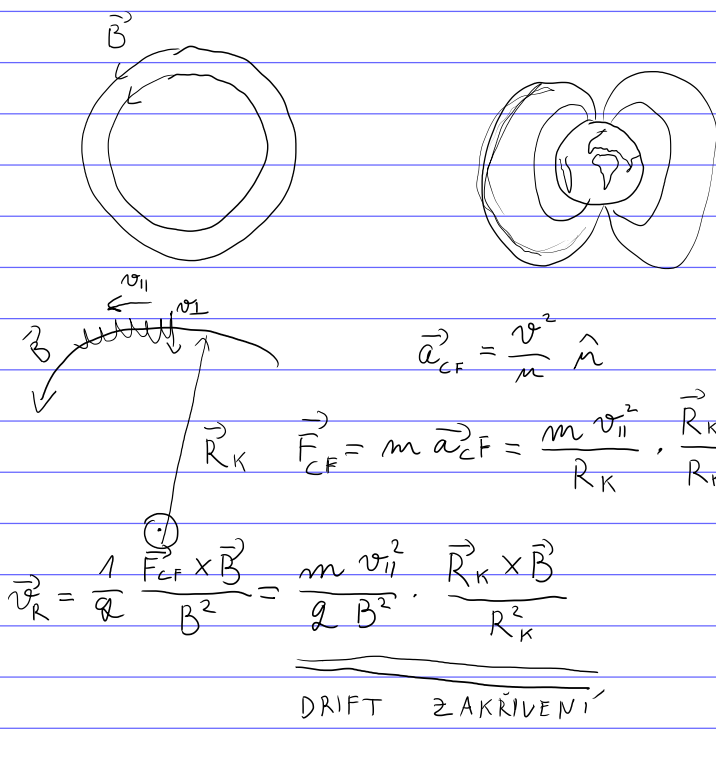 B⃗
v∥
v⊥
B⃗
a⃗_CF = v²/r r̂
R⃗_K
F⃗_CF = m a⃗_CF = m v∥²/R_K · R⃗_K/R_K
v⃗_R = 1/q F⃗_CF × B⃗/B² = m v∥²/q B² · R⃗_K × B⃗/R_K²
DRIFT ZAKŘIVENÍ